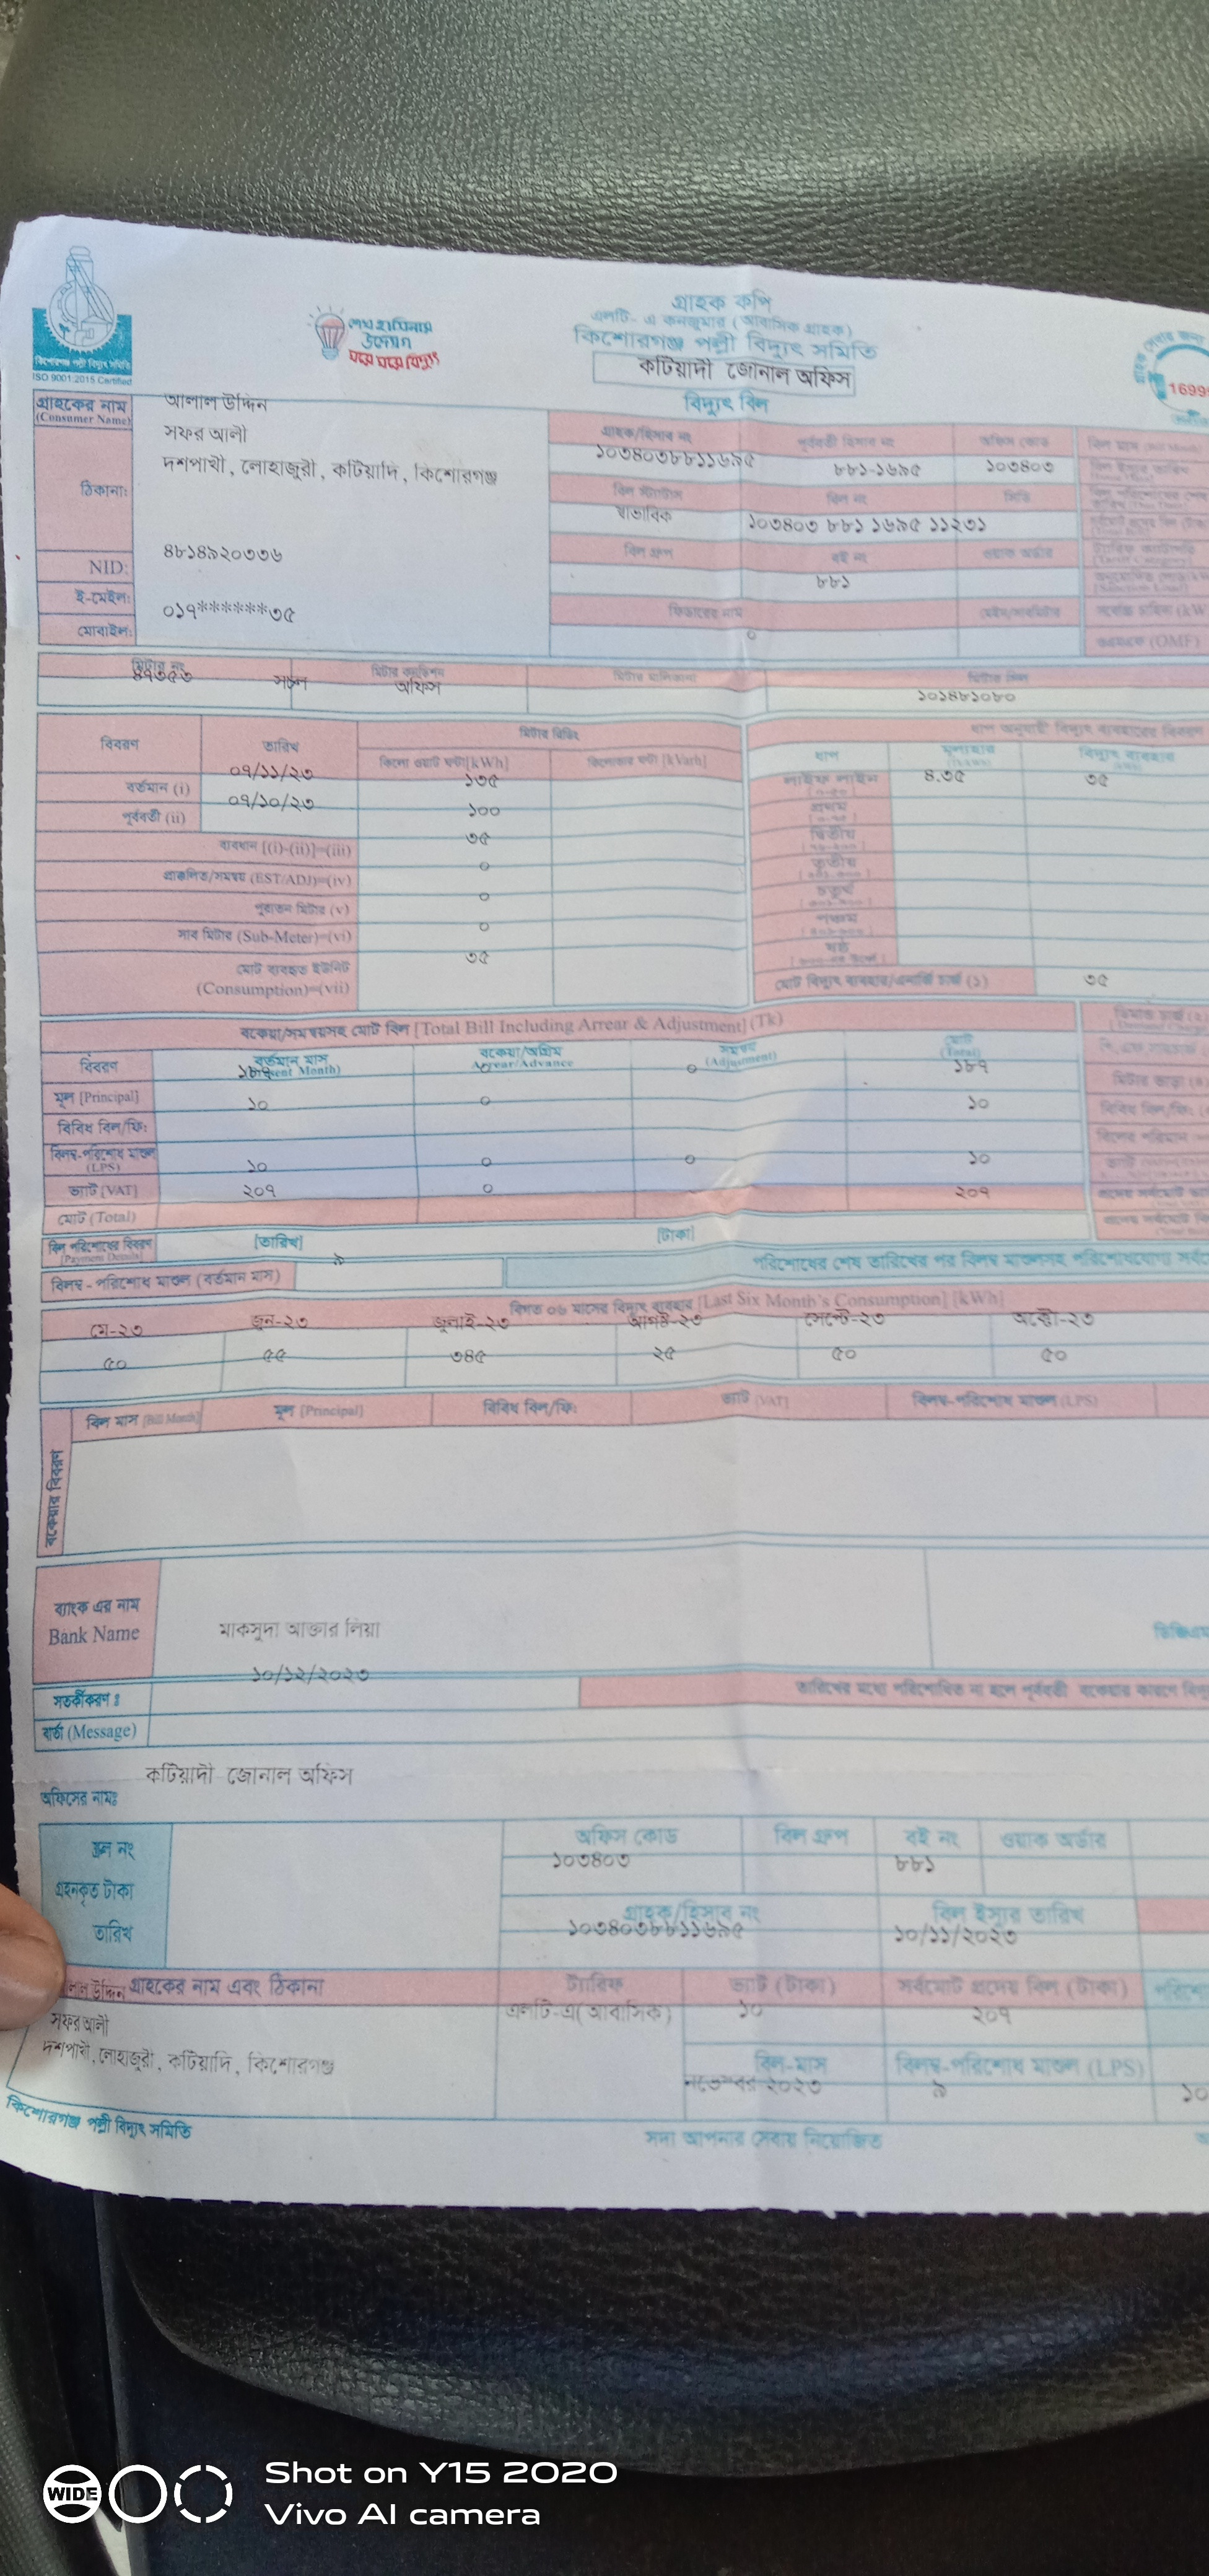 গ্রাহক কপি
এলটি- এ কনজুমার (আবাসিক গ্রাহক)
কিশোরগঞ্জ পল্লী বিদ্যুৎ সমিতি
কটিয়াদী জোনাল অফিস
বিদ্যুৎ বিল
কিশোরগঞ্জ পল্লী বিদ্যুৎ সমিতি
ISO 9001:2015 Certified
শেখ হাসিনার
উদ্যোগ
ঘরে ঘরে বিদ্যুৎ
1699
গ্রাহকের নাম
(Consumer Name)
আলাল উদ্দিন
সফর আলী
ঠিকানা:
দশপাখী, লোহাজুরী, কটিয়াদি, কিশোরগঞ্জ
NID:
৪৮১৪৯২০৩৩৬
ই-মেইল:
মোবাইল:
০১৭******৩৫
গ্রাহক/হিসাব নং পূর্ববর্তী হিসাব নং অফিস কোড
১০৩৪০৩৮৮১১৬৯৫ ৮৮১-১৬৯৫ ১০৩৪০৩
বিল স্ট্যাটাস বিল নং
স্বাভাবিক ১০৩৪০৩ ৮৮১ ১৬৯৫ ১১২৩১
বিল গ্রুপ বই নং ওয়াক অর্ডার
৮৮১
ফিডারের নাম
০
মিটার নং
৪৭৩৫৩ সচল অফিস
মিটার মালিকানা
১০১৪৮১০৮০
বিবরণ তারিখ মিটার রিডিং
কিলো ওয়াট ঘন্টা[kWh] [kVarh]
বর্তমান (i) ০৭/১১/২৩ ১৩৫
পূর্ববর্তী (ii) ০৭/১০/২৩ ১০০
ব্যবধান [(i)-(ii)]=(iii) ৩৫
প্রাক্কলিত/সমন্বয় (EST/ADJ)=(iv) ০
পুরাতন মিটার (v) ০
সাব মিটার (Sub-Meter)=(vi) ০
মোট ব্যবহৃত ইউনিট
(Consumption)=(vii) ৩৫
ধাপ অনুযায়ী বিদ্যুৎ ব্যবহারের বিবরণ
ধাপ মূল্যহার বিদ্যুৎ ব্যবহার
লাইফ লাইন ৪.৩৫ ৩৫
প্রথম
দ্বিতীয়
তৃতীয়
চতুর্থ
পঞ্চম
ষষ্ঠ
মোট বিদ্যুৎ ব্যবহার/এনার্জি চার্জ (১) ৩৫
বকেয়া/সমন্বয়সহ মোট বিল [Total Bill Including Arrear & Adjustment] (Tk)
বিবরণ বর্তমান মাস বকেয়া/অগ্রিম সমন্বয় মোট
Arrear/Advance (Adjustment) (Total)
১৮৭ ০ ০ ১৮৭
মূল [Principal] ১০ ০ ১০
বিবিধ বিল/ফি:
বিলম্ব-পরিশোধ মাশুল
(LPS) ১০ ০ ০ ১০
ভ্যাট [VAT] ২০৭ ০ ২০৭
মোট (Total)
বিল পরিশোধের বিবরণ [তারিখ] [টাকা]
[Payment Details]
৯
বিলম্ব - পরিশোধ মাশুল (বর্তমান মাস)
পরিশোধের শেষ তারিখের পর বিলম্ব মাশুলসহ পরিশোধযোগ্য
বিগত ০৬ মাসের বিদ্যুৎ ব্যবহার [Last Six Month's Consumption] [kWh]
মে-২৩ জুন-২৩ জুলাই-২৩ আগষ্ট-২৩ সেপ্টে-২৩ অক্টো-২৩
৫০ ৫৫ ৩৪৫ ২৫ ৫০ ৫০
বকেয়ার বিবরণ
বিল মাস [Bill Month] মূল [Principal] বিবিধ বিল/ফি: ভ্যাট [VAT] বিলম্ব-পরিশোধ মাশুল (LPS)
ব্যাংক এর নাম
Bank Name
মাকসুদা আক্তার লিয়া
১০/১২/২০২৩
সতর্কীকরণ :
তারিখের মধ্যে পরিশোধিত না হলে পূর্ববর্তী বকেয়ার কারণে
বার্তা (Message)
কটিয়াদী জোনাল অফিস
অফিসের নামঃ
স্ক্রল নং
গ্রহনকৃত টাকা
তারিখ
অফিস কোড বিল গ্রুপ বই নং ওয়াক অর্ডার
১০৩৪০৩ ৮৮১
গ্রাহক/হিসাব নং বিল ইস্যুর তারিখ
১০৩৪০৩৮৮১১৬৯৫ ১০/১১/২০২৩
উদ্দিন গ্রাহকের নাম এবং ঠিকানা ট্যারিফ ভ্যাট (টাকা) সর্বমোট প্রদেয় বিল (টাকা)
সফর আলী এলটি-এ(আবাসিক) ১০ ২০৭
দশপাখী, লোহাজুরী, কটিয়াদি, কিশোরগঞ্জ
বিল-মাস বিলম্ব-পরিশোধ মাশুল (LPS)
নভেম্বর ২০২৩ ৯ ১০
কিশোরগঞ্জ পল্লী বিদ্যুৎ সমিতি
সদা আপনার সেবায় নিয়োজিত
WIDE
Shot on Y15 2020
Vivo AI camera